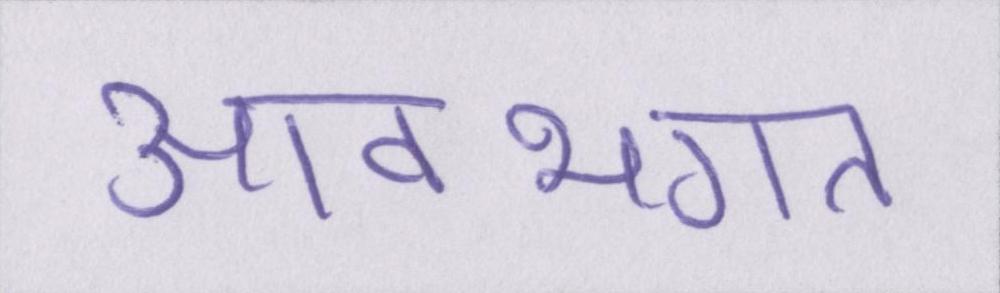 आवभगत